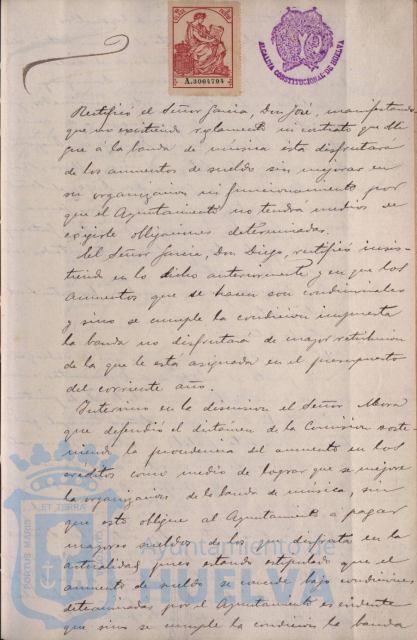 A.3004704
ALCALDIA CONSTITUCIONAL DE HUELVA
Rectificó el Señor Garcia, Don José, manifestando
que no existiendo reglamento ni contrato que obli
gue á la banda de música esta disfrutara
de los aumentos de sueldo sin mejorar en
su organizacion ni funcionamiento por
que el Ayuntamiento no tendrá medios de
exijirle obligaciones determinadas.
El Señor Garcia, Don Diego, rectificó insis-
tiendo en lo dicho anteriormente y en que los
aumentos que se hacen son condicionales
y sino se cumple la condicion impuesta
la banda no disfrutará de mayor retribucion
de la que le esta asignada en el presupuesto
del corriente año.
Intervino en la discusion el Señor Mora
que defendió el dictámen de la Comision soste-
niendo la procedencia del aumento en los
creditos como medio de lograr que se mejore
la organizacion de la banda de música, sin
que esto obligue al Ayuntamiento á pagar
mayores sueldos de los que disfruta en la
actualidad, pues estando estipulado que el
aumento de sueldo se concede bajo condiciones
determinadas por el Ayuntamiento es evidente
que sino se cumple la condicion la banda
PORTUS MARIS ET TERRAE CUSTODIA
Ayuntamiento de
HUELVA